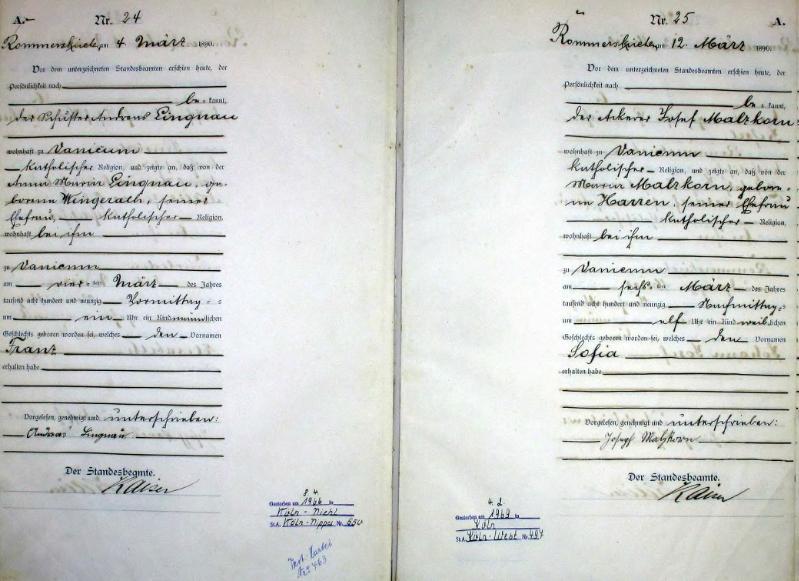 A. Nr. 24
Rommerskirchen am 4 März 1890.
Vor dem unterzeichneten Standesbeamten erschien heute, der
Persönlichkeit nach
be = kannt,
der Schuster Andreas Lingnau
wohnhaft zu Vanicum
katholischer Religion, und zeigte an, daß von der
Anna Maria Lingnau, ge-
borene Wingerath, seiner
Ehefrau, katholischer Religion,
wohnhaft bei ihm
zu Vanicum
am vier März des Jahres
tausend acht hundert und neunzig Vormittag =
um ein Uhr ein Kind männlichen
Geschlechts geboren worden sei, welches den Vornamen
Franz
erhalten habe
Vorgelesen, genehmigt und unterschrieben:
Andreas Lingnau
Der Standesbeamte.
Kaiser
8.4.
Gestorben am 1966 in
Köln - Niehl
St.A. Köln-Nippes Nr. 650
Nr. 25 A.
Rommerskirchen am 12. März 1890.
Vor dem unterzeichneten Standesbeamten erschien heute, der
Persönlichkeit nach
be = kannt,
der Ackerer Josef Malzkorn
wohnhaft zu Vanicum
katholischer Religion, und zeigte an, daß von der
Maria Malzkorn, gebore-
ne Harren, seiner Ehefrau
katholischer Religion,
wohnhaft bei ihm
zu Vanicum
am sechs März des Jahres
tausend acht hundert und neunzig Nachmittag =
um elf Uhr ein Kind weiblichen
Geschlechts geboren worden sei, welches den Vornamen
Sofia
erhalten habe
Vorgelesen, genehmigt und unterschrieben:
Joseph Malzkorn
Der Standesbeamte.
Kaiser
4.2.
Gestorben am 1969 in
Köln
St.A. Köln-West Nr. 484